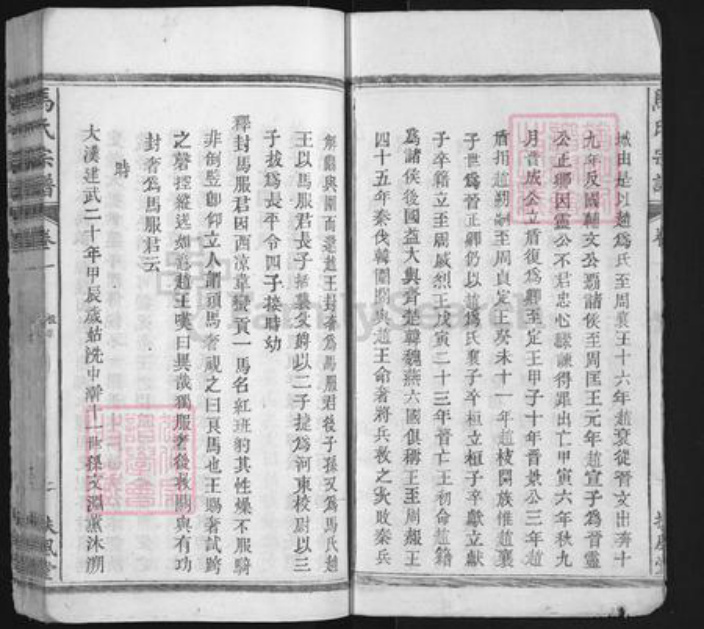 城由是以趙為氏至周襄王十六年趙衰從晉文出奔十
九年反國輔文公霸諸侯至周匡王元年趙宣子為晉靈
公正卿因靈公不君忠心諫得罪出亡甲寅六年秋九
月晉成公立盾復為卿至定王甲子十年晉景公三年趙
盾朔趙至周貞定王癸未十一年趙枝閤族惟趙襄
子世為晉正卿仍以趙為氏襄子卒桓立桓子卒獻立獻
子卒籍立至周威烈王戊寅二十三年晉亡王初命趙籍
為諸侯後國益大與齊楚韓魏燕六國俱稱王至周赧王
四十五年秦伐韓圍閼與趙王命奢將兵救之大敗秦兵
解閼與圍而還趙王封奢為馬服君後子孫又為馬氏趙
王以馬服君長子括襲父爵以二子捷為河東校尉以三
子拔為長平令四子接時幼
釋封馬服君因西凉韋蠻貢一馬名紅班豹其性燥不服騎
非倒竪卽仰立人謂頑馬奢視之曰良馬也王賜奢試跨
之磬控縱送如意趙王嘆曰異哉獨服奢後救閼與有功
封奢為馬服君云
時
大漢建武二十年甲辰歲姑洗中澣十一世孫文淵薰沐溯
馬氏宗譜 卷一
二 扶風堂
馬氏宗譜
FamilySearch